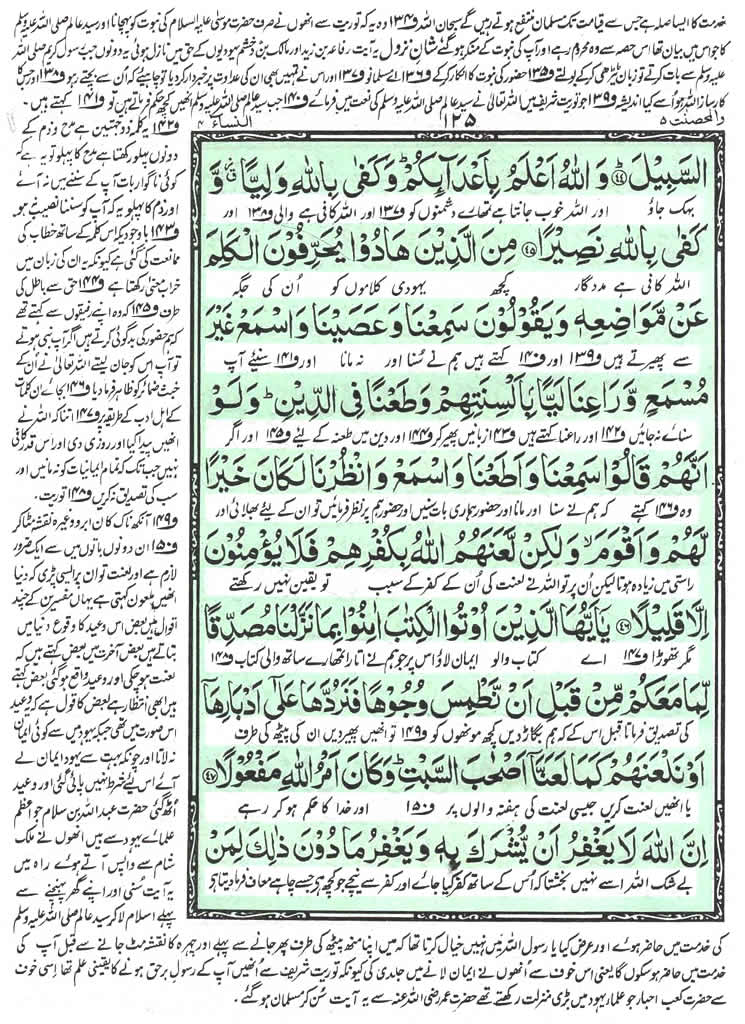 خدمت کا ایسا صلہ ہے جس سے قیامت تک مسلمان منتفع ہوتے رہیں گے سبحان اللہ ف۱۳۴ وہ یہ کہ توریت سے انھوں نے صرف حضرت موسیٰ علیہ السلام کی نبوت کو پہچانا اور سید عالم صلی اللہ علیہ وسلم
کا جو اس میں بیان تھا اس حصہ سے وہ محروم رہے اور آپ کی نبوت کے منکر ہو گئے شان نزول یہ آیت رفاعہ بن زید اور مالک بن دخشم یہودیوں کے حق میں نازل ہوئی یہ دونوں جب رسول کریم صلی اللہ
علیہ وسلم سے بات کرتے تو زبان ٹیڑھی کر کے بولتے ف۱۳۵ حضور کی نبوت کا انکار کر کے ف۱۳۶ اے مسلمانو ف۱۳۷ اور اس نے تمہیں بھی ان کی عداوت پر خبردار کر دیا تو چاہیے کہ ان سے بچتے رہو ف۱۳۸ اور جس کا
کارساز اللہ ہو اسے کیا اندیشہ ف۱۳۹ جو توریت شریف میں اللہ تعالیٰ نے سید عالم صلی اللہ علیہ وسلم کی نعت میں فرمائے ف۱۴۰ جب سید عالم صلی اللہ علیہ وسلم انھیں کچھ حکم فرماتے ہیں تو ف۱۴۱ کہتے ہیں۔
والمحصنت ۵
۱۲۵
النساء ۴
السَّبِيْلَ ﴿۴۴﴾ وَاللّٰهُ اَعْلَمُ بِاَعْدَآىِٕكُمْ وَكَفٰى بِاللّٰهِ وَلِيًّا وَّ
بہک جاؤ اور اللہ خوب جانتا ہے تمہارے دشمنوں کو ف۱۳۷ اور اللہ کافی ہے والی ف۱۳۸ اور
كَفٰى بِاللّٰهِ نَصِيْرًا ﴿۴۵﴾ مِنَ الَّذِيْنَ هَادُوْا يُحَرِّفُوْنَ الْكَلِمَ
اللہ کافی ہے مددگار کچھ یہودی کلاموں کو اُن کی جگہ
عَنْ مَّوَاضِعِهٖ وَيَقُوْلُوْنَ سَمِعْنَا وَعَصَيْنَا وَاسْمَعْ غَيْرَ
سے پھیرتے ہیں ف۱۳۹ اور ف۱۴۰ کہتے ہیں ہم نے سُنا اور نہ مانا اور ف۱۴۱ سنیئے آپ
مُسْمَعٍ وَّرَاعِنَا لَيًّۢا بِاَلْسِنَتِهِمْ وَطَعْنًا فِى الدِّيْنِ ۭ وَلَوْ
سنائے نہ جائیں ف۱۴۲ اور راعنا کہتے ہیں ف۱۴۳ زبانیں پھیر کر ف۱۴۴ اور دین میں طعنہ کے لیئے ف۱۴۵ اور اگر
اَنَّهُمْ قَالُوْا سَمِعْنَا وَاَطَعْنَا وَاسْمَعْ وَانْظُرْنَا لَكَانَ خَيْرًا
وہ ف۱۴۶ کہتے کہ ہم نے سنا اور مانا اور حضور ہماری بات سنیں اور حضور ہم پر نظر فرمائیں تو ان کے لیئے بھلائی اور
لَّهُمْ وَاَقْوَمَ ۙ وَلٰكِنْ لَّعَنَهُمُ اللّٰهُ بِكُفْرِهِمْ فَلَا يُؤْمِنُوْنَ
راستی میں زیادہ ہوتا لیکن اُن پر تو اللہ نے لعنت کی اُن کے کفر کے سبب تو یقین نہیں رکھتے
اِلَّا قَلِيْلًا ﴿۴۶﴾ يٰٓاَيُّهَا الَّذِيْنَ اُوْتُوا الْكِتٰبَ اٰمِنُوْا بِمَا نَزَّلْنَا مُصَدِّقًا
مگر تھوڑا ف۱۴۷ اے کتاب والو ایمان لاؤ اس پر جو ہم نے اتارا تمھارے ساتھ والی کتاب ف۱۴۸
لِّمَا مَعَكُمْ مِّنْ قَبْلِ اَنْ نَّطْمِسَ وُجُوْهًا فَنَرُدَّهَا عَلٰٓى اَدْبَارِهَآ
کی تصدیق فرماتا قبل اس کے کہ ہم بگاڑ دیں کچھ مونھوں کو ف۱۴۹ تو انھیں پھیر دیں ان کی پیٹھ کی طرف
اَوْ نَلْعَنَهُمْ كَمَا لَعَنَّآ اَصْحٰبَ السَّبْتِ ۭ وَكَانَ اَمْرُ اللّٰهِ مَفْعُوْلًا ﴿۴۷﴾
یا انھیں لعنت کریں جیسی لعنت کی ہفتہ والوں پر ف۱۵۰ اور خدا کا حکم ہو کر رہے
اِنَّ اللّٰهَ لَا يَغْفِرُ اَنْ يُّشْرَكَ بِهٖ وَيَغْفِرُ مَا دُوْنَ ذٰلِكَ لِمَنْ
بے شک اللہ اسے نہیں بخشتا کہ اُس کے ساتھ کفر کیا جائے اور کفر سے نیچے جو کچھ ہے جسے چاہے معاف فرما دیتا ہے
ف۱۴۲ یہ کلمہ ذوجہتین ہے مدح و ذم کے
دونوں پہلو رکھتا ہے مدح کا پہلو تو یہ ہے کہ
کوئی ناگوار بات آپ کے سننے میں نہ آئے
اور ذم کا پہلو یہ کہ آپ کو سننا نصیب نہ ہو
ف۱۴۳ باوجودیکہ اس کلمہ کے ساتھ خطاب کی
ممانعت کی گئی ہے کیونکہ یہ ان کی زبان میں
خراب معنی رکھتا ہے ف۱۴۴ حق سے باطل کی
طرف ف۱۴۵ کہ وہ اپنے رفیقوں سے کہتے تھے کہ
ہم حضور کی بدگوئی کرتے ہیں اگر آپ نبی ہوتے
تو آپ اس کو جان لیتے اللہ تعالیٰ نے اُن کے
خبث ضمائر کو ظاہر فرما دیا ف۱۴۶ بجائے ان کلمات
کے اہل ادب کے طریقہ پر ف۱۴۷ اتنا کہ اللہ نے
انھیں پیدا کیا اور روزی دی اور اس قدر کافی
نہیں جب تک کہ تمام ایمانیات کو نہ مانیں اور
سب کی تصدیق نہ کریں ف۱۴۸ توریت۔
ف۱۴۹ آنکھ ناک کان ابرو وغیرہ نقشہ مٹا کر
ف۱۵۰ ان دونوں باتوں میں سے ایک ضرور
لازم ہے اور لعنت تو ان پر ایسی پڑی کہ دنیا
انھیں ملعون کہتی ہے یہاں مفسرین کے چند
اقوال ہیں بعض اس وعید کا وقوع دنیا میں
بتاتے ہیں بعض آخرت میں بعض کہتے ہیں کہ
لعنت ہو چکی اور وعید واقع ہو گئی بعض کہتے
ہیں ابھی انتظار ہے بعض کا قول ہے کہ یہ وعید
اس صورت میں تھی جبکہ یہود میں سے کوئی ایمان
نہ لاتا اور چونکہ بہت سے یہود ایمان لے
آئے اس لیئے شرط نہیں پائی گئی اور وعید
اٹھ گئی حضرت عبد اللہ بن سلام جو اعظم
علمائے یہود سے ہیں انھوں نے ملک
شام سے واپس آتے ہوئے راہ میں
یہ آیت سُنی اور اپنے گھر پہنچنے سے
پہلے اسلام لا کر سید عالم صلی اللہ علیہ وسلم
کی خدمت میں حاضر ہوئے اور عرض کیا یا رسول اللہ میں نہیں خیال کرتا تھا کہ میں اپنا منھ پیٹھ کی طرف پھر جانے سے پہلے اور چہرہ کا نقشہ مٹ جانے سے قبل آپ کی
خدمت میں حاضر ہو سکوں گا یعنی اس خوف سے اُنھوں نے ایمان لانے میں جلدی کی کیونکہ توریت شریف سے انھیں آپ کے رسول برحق ہونے کا یقینی علم تھا اسی خوف
سے حضرت کعب احبار جو علماء یہود میں بڑی منزلت رکھتے تھے حضرت عمر رضی اللہ عنہ سے یہ آیت سُن کر مسلمان ہو گئے۔